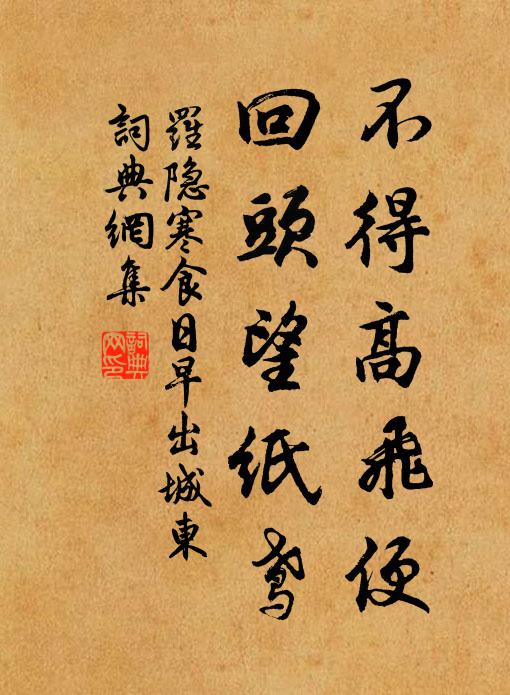 不得高飛便
回頭望紙鳶
羅隐寒食日早出城東
詞典網集
詞典
网印